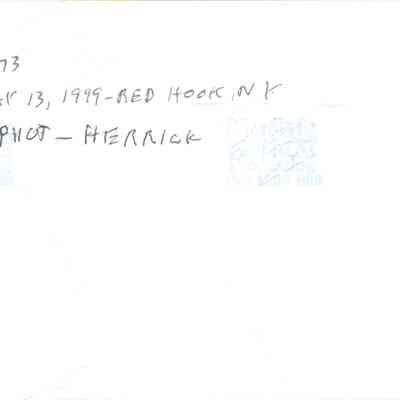 73
13, 1999-RED HOOK, NY
PHOT - HERRICK